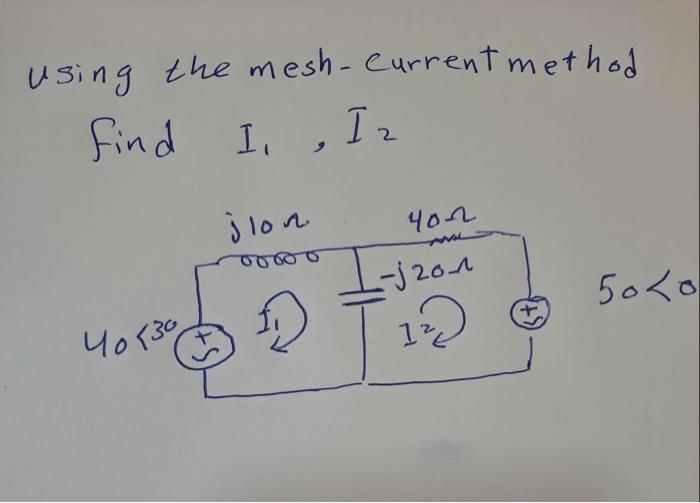 using the mesh-current method
find I₁ , I₂
j10Ω 40Ω
-j20Ω
50<0
40<30
I₁ I2